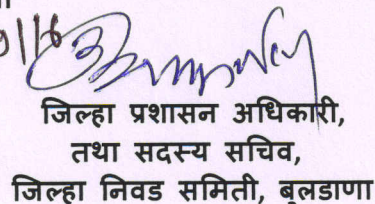 जिल्हा प्रशासन अधिकारी,
तथा सदस्य सचिव,
जिल्हा निवड समिती, बुलडाणा